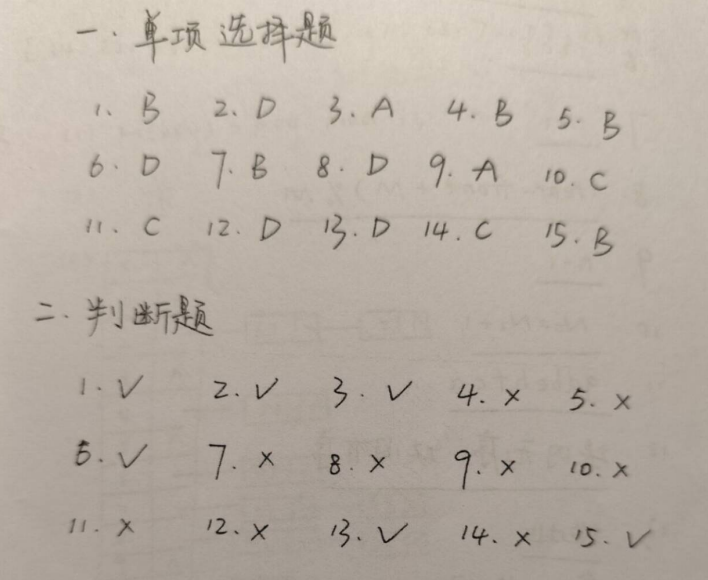 一、单项选择题
1. B 2. D 3. A 4. B 5. B
6. D 7. B 8. D 9. A 10. C
11. C 12. D 13. D 14. C 15. B
二、判断题
1. √ 2. √ 3. √ 4. × 5. ×
6. √ 7. × 8. × 9. × 10. ×
11. × 12. × 13. √ 14. × 15. √